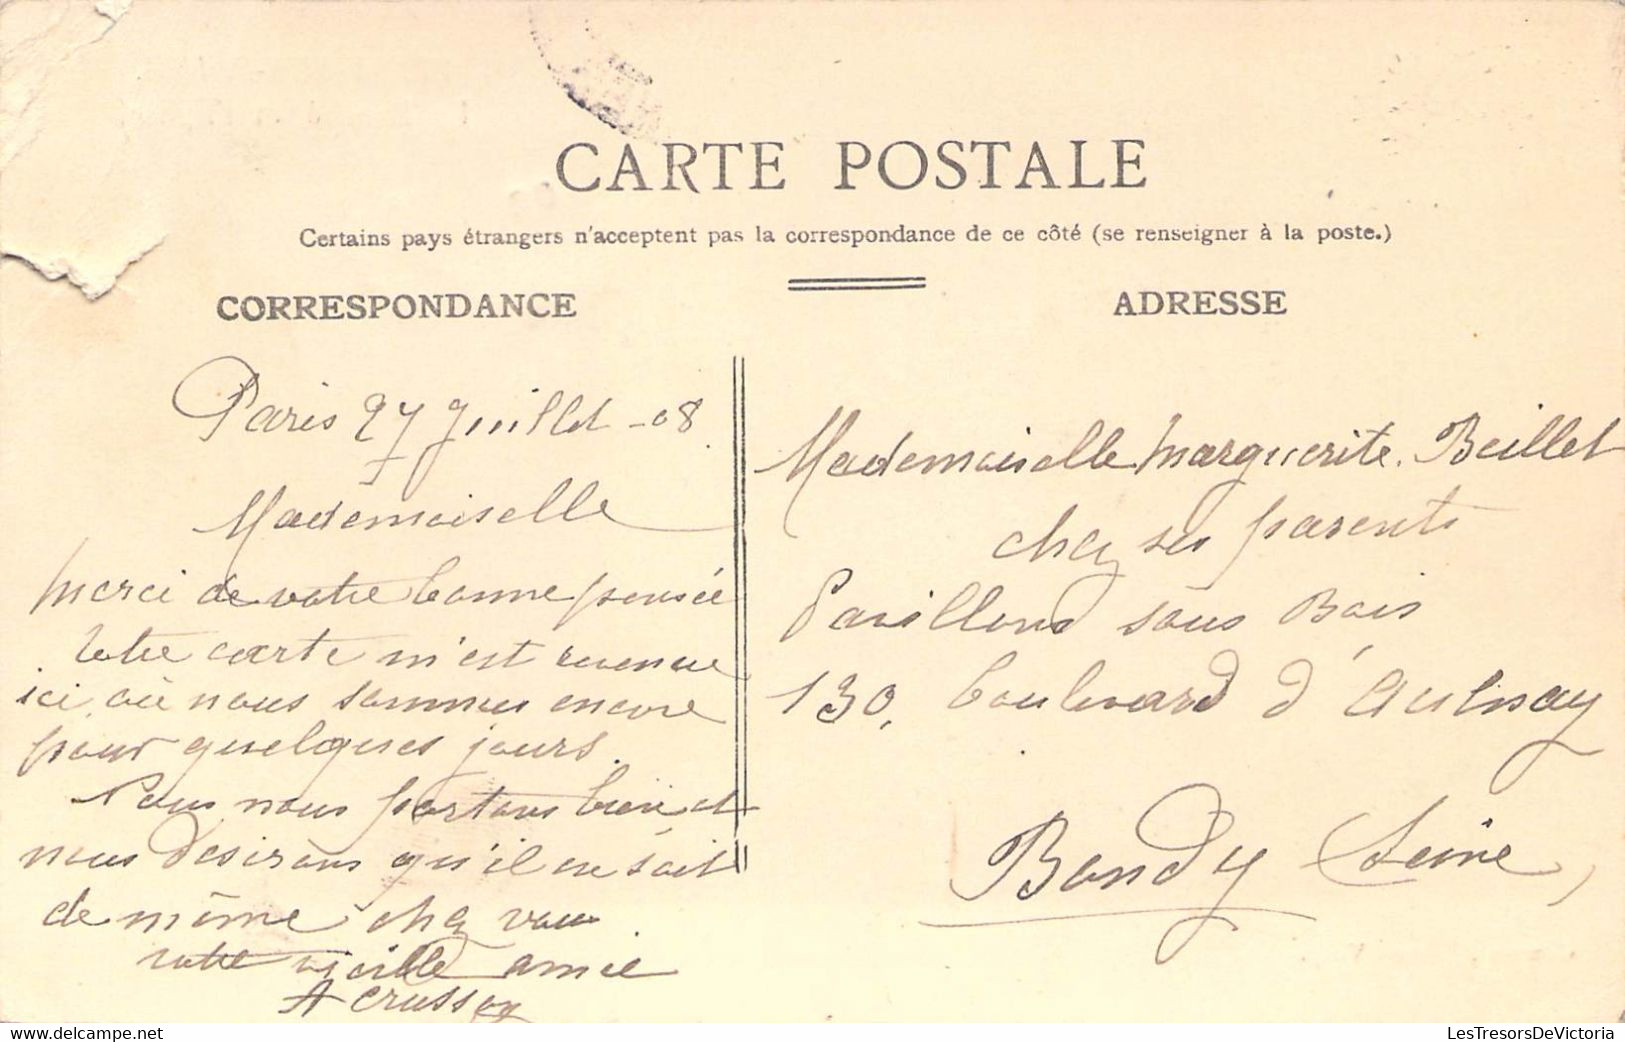 CARTE POSTALE
Certains pays étrangers n'acceptent pas la correspondance de ce côté (se renseigner à la poste.)
CORRESPONDANCE
ADRESSE
Paris 27 Juillet -08
Mademoiselle
Merci de votre bonne pensée
Votre carte m'est revenue
ici où nous sommes encore
pour quelques jours.
Tous nous portons bien et
nous désirons qu'il en soit
de même chez vous
votre vieille amie
A Crussey
Mademoiselle Marguerite Beillet
chez ses parents
Pavillons sous Bois
130, boulevard d'Aulnay
Bondy (Seine)
LesTresorsDeVictoria
www.delcampe.net